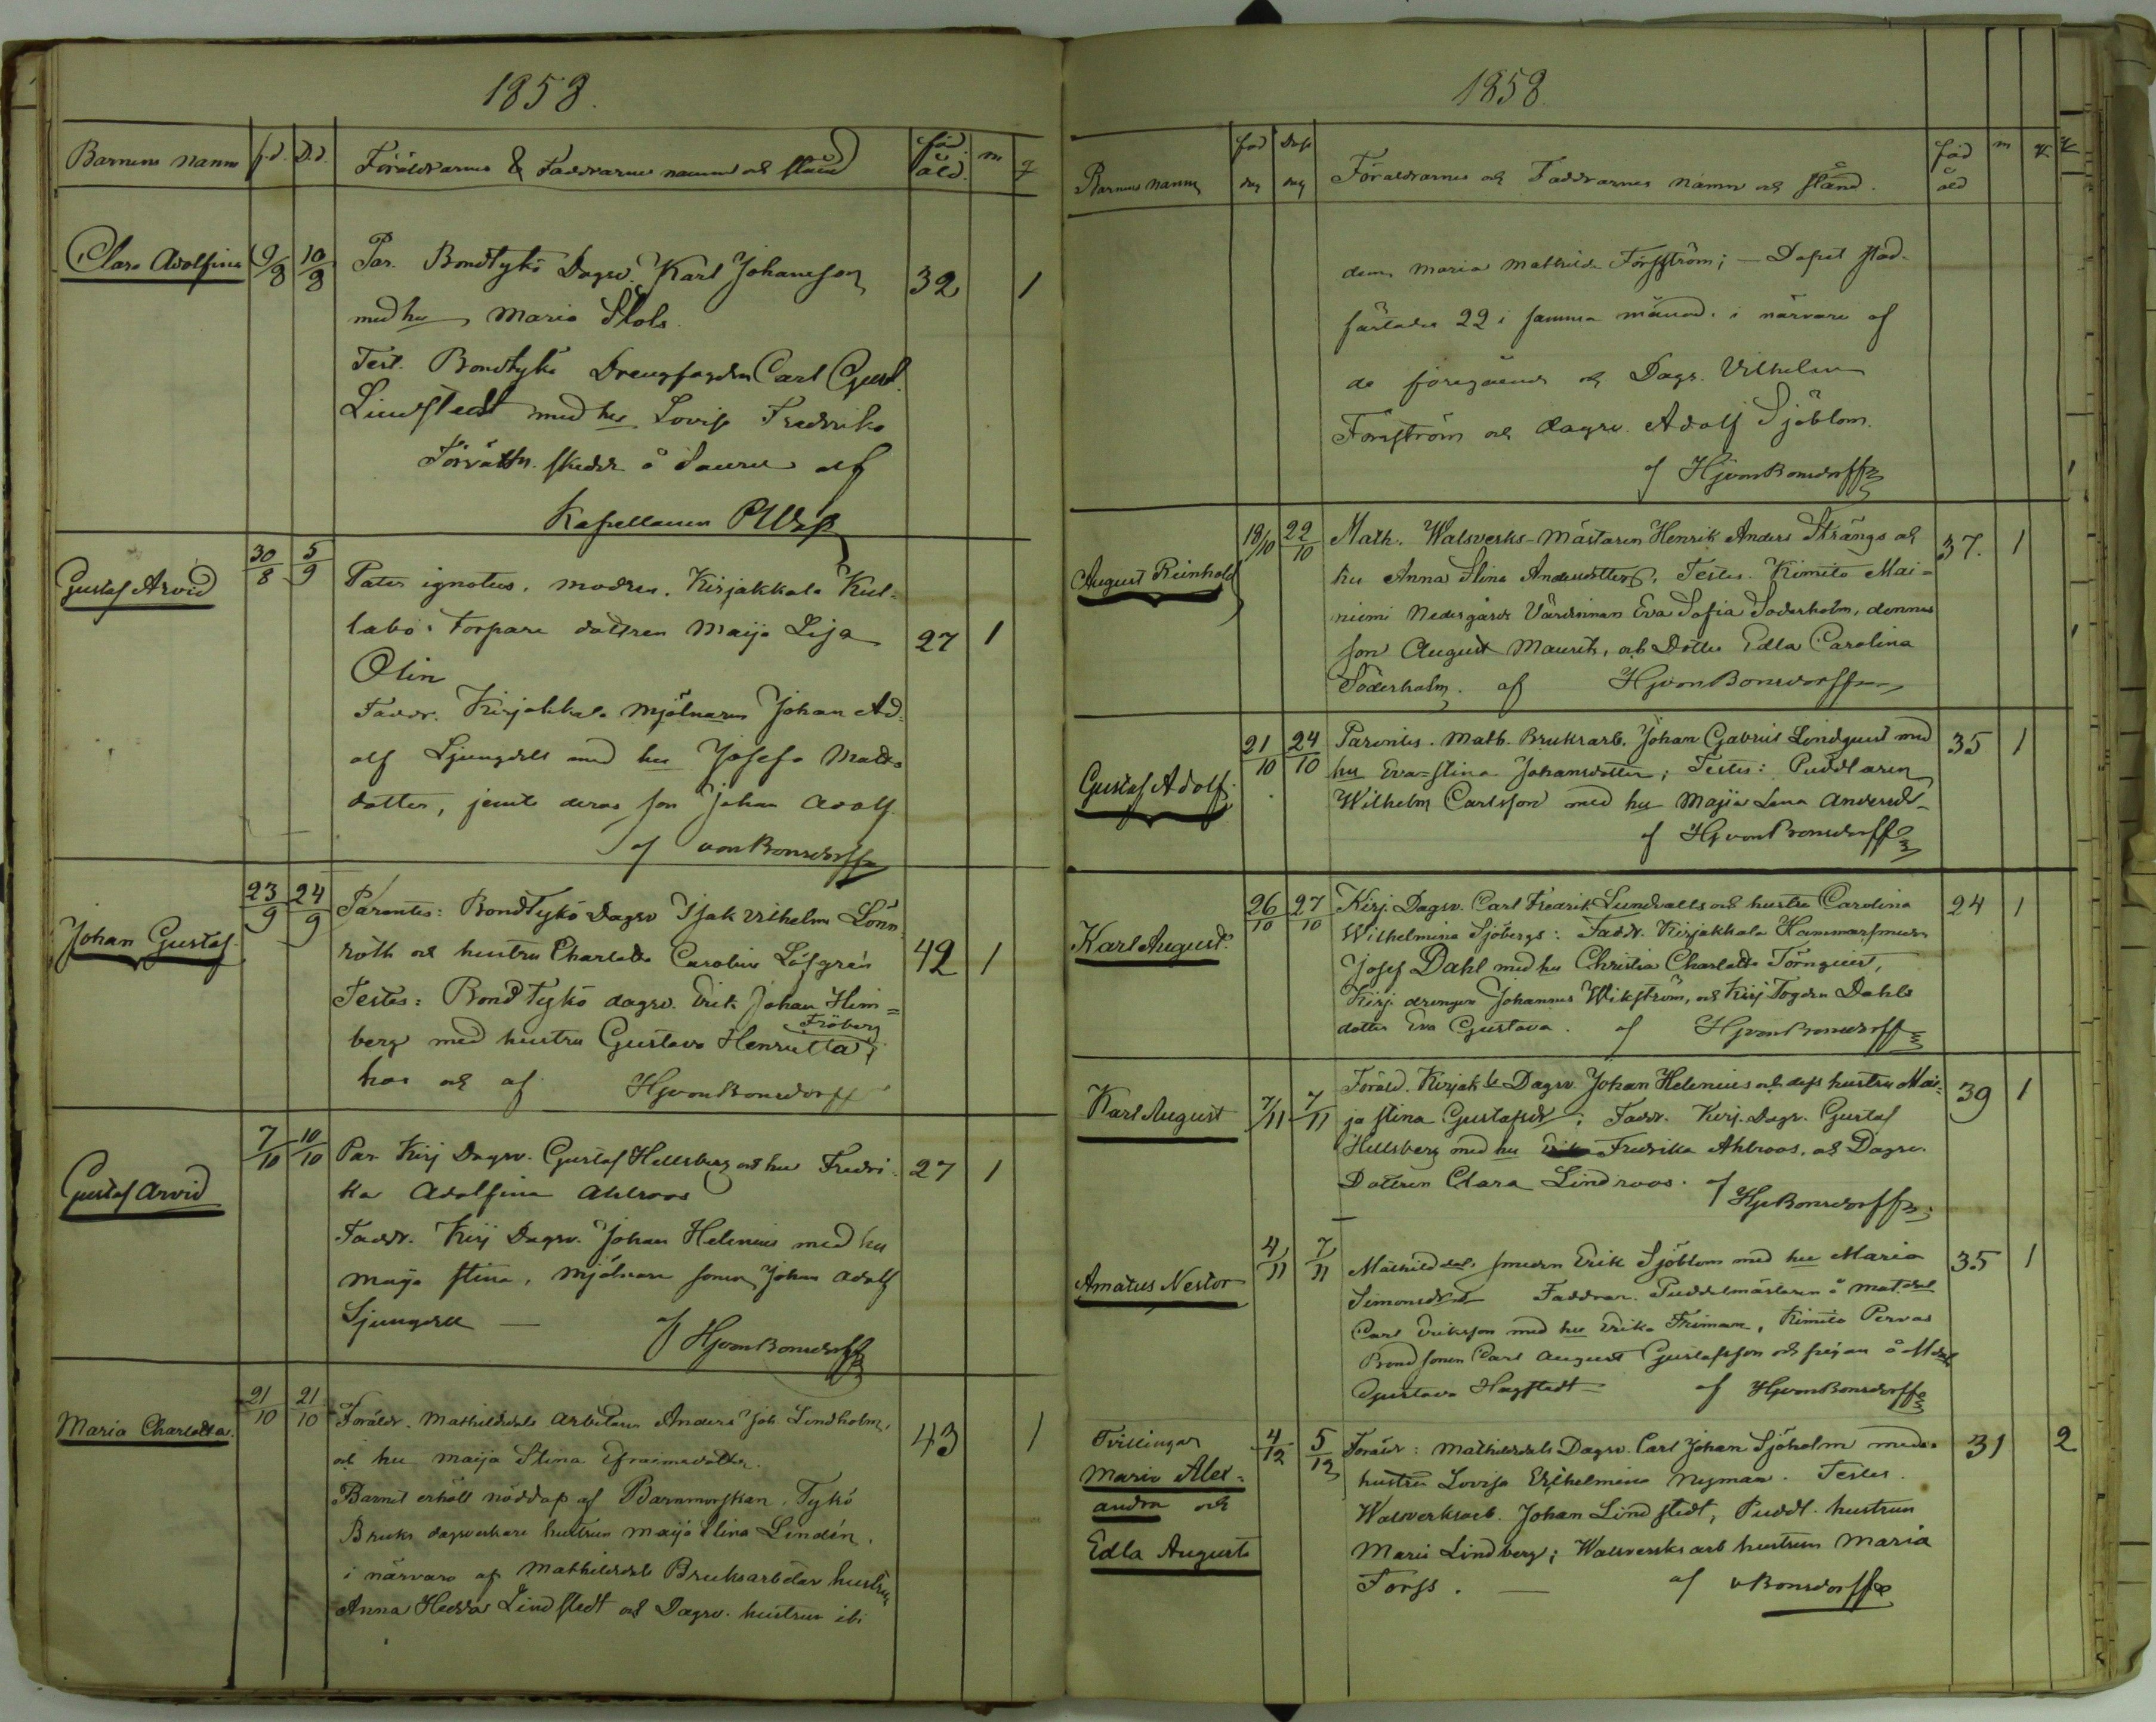 1858.
Barnens namn f.d. D.d. Föräldrarnes & Faddrarnes namn och stånd föd. åld. m q
Clara Adolfina 9/8 10/8 Par. Bondtykö Dagsv. Karl Johansson 32 1
med hu Maria Stols.
Test. Bondtykö Drengfogden Carl Gust.
Lindstedt med hu Lovisa Fredrika
Förrättn. skedde å Sauru af
Kapellanen
Gustaf Arvid 30/8 5/9 Pater ignotus. modren. Kirjakkala Kul-
labo. Torpare dottren Maija Lisa 27 1
Olin
Faddr. Kirjakkala Mjölnaren Johan Ad-
olf Ljungdell med hu Josefa Matts
dotter, jemte deras son Johan Adolf.
af von Bonsdorff
Johan Gustaf. 23/9 24/9 Parentes: Bondtykö Dagsv Isak Vilhelm Lönn
roth och hustru Charlotta Carolina Löfgrén 42 1
Testes: Bond Tykö dagsv. Erik Johan Him=
Fröberg
berg med hustru Gustava Henrietta;
hos och af HJvonBonsdorff
Gustaf Arvid 7/10 10/10 Par Kirj Dagsv. Gustaf Hellsberg och hu Fredri- 27 1
ka Adolfina Ahlroos
Faddr. Kirj Dagsv. Johan Helenius med hu
Maija Stina, Mjölnare sonen Johan Adolf
Ljungdell — af HJvonBonsdorff
Maria Charlotta. 21/10 21/10 Föräldr. Mathildedals arbetaren Anders Joh. Lindholm, 43 1
och hu Maija Stina Efraimsdotter.
Barnet erhöll nöddop af Barnmorskan, Tykö
Bruks dagsverkare hustrun Maija Stina Lindén,
i närvaro af Mathildedals Bruksarbetar hustrun
Anna Hedda Lindstedt och Dagsv. hustrun ibi
1858
Barnens namn föd dag Dop dag Föräldrarnes och Faddrarnes namn och stånd. föd åld m K K
dem Maria Mathilda Forsström; — Dopet stad-
fästades 22 i samma månad. i närvaro af
de föregående och Dagsv. Vilhelm
Forsström och dagsv. Adolf Sjöblom.
af HJvonBonsdorff
August Reinhold 18/10 22/10 Math. Walsverks-Mästaren Henrik Anders Strångs och 37. 1
hu Anna Stina Andersdotters, Testes. Kimito Mai=
niemi Nedergårds Värdinnan Eva Sofia Söderholm, dennes
son August Maurits, och Dotter Edla Carolina
Söderholm. af HJvonBonsdorff
Gustaf Adolf. 21/10 24/10 Parentes. Math. Bruksarb. Johan Gabriel Lindquist med 35 1
hu Eva-Stina Johansdotter; Testes: Puddlaren
Wilhelm Carlsson med hu Maija Lena Andersdr
af HJvonBonsdorff
Karl August. 26/10 27/10 Kirj. Dagsv. Carl Fredrik Lundvalls och hustru Carolina 24 1
Wilhelmina Sjöbergs: Faddr. Kirjakkala Hammarsmeden
Josef Dahl med hu Christia Charlotta Törnquist,
Kirj. drengen Johannes Wikström, och Kirj. Fogden Dahls
dotter Eva Gustava. af HJvonBonsdorff
Karl August 7/11 7/11 Föräld. Kirjak la Dagsv. Johan Helenius och dess hustru Mai- 39 1
ja Stina Gustafsdr; Faddr. Kirj. Dagsv. Gustaf
Hellsberg med hu Fredrika Ahlroos, och Dagsv.
Dottren Clara Lindroos. af HJvBonsdorff
Amatus Nestor 4/11 7/11 Mathilddals smeden Erik Sjöblom med hu Maria 35 1
Simonsdr Faddrar. Puddelmästaren å Mat.dal
Carl Eriksson med hu Erika Friman, Kimito Pervas
Bondsonen Carl August Gustafsson och pigan å M.dal
Gustava Hagstedt — af HJvonBonsdorff
Tvillingar 4/12 5/12 Föräldr: Mathildedals Dagsv. Carl Johan Sjöholm med 31 2
Maria Alex=
andra och
Edla Augusta
hustru Lovisa Vilhelmina Nyman. Testes.
Walsverksarb. Johan Lindstedt, Puddl. hustrun
Maria Lindberg; Walsverks arb hustrun Maria
Forss. — af vBonsdorff